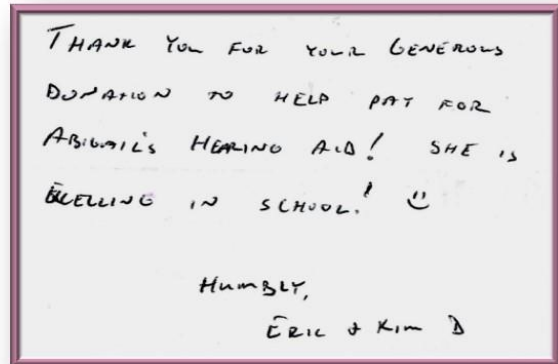 THANK YOU FOR YOUR GENEROUS
DONATION TO HELP PAY FOR
ABIGAIL'S HEARING AID! SHE IS
EXCELLING IN SCHOOL!
HUMBLY,
ERIC & KIM D